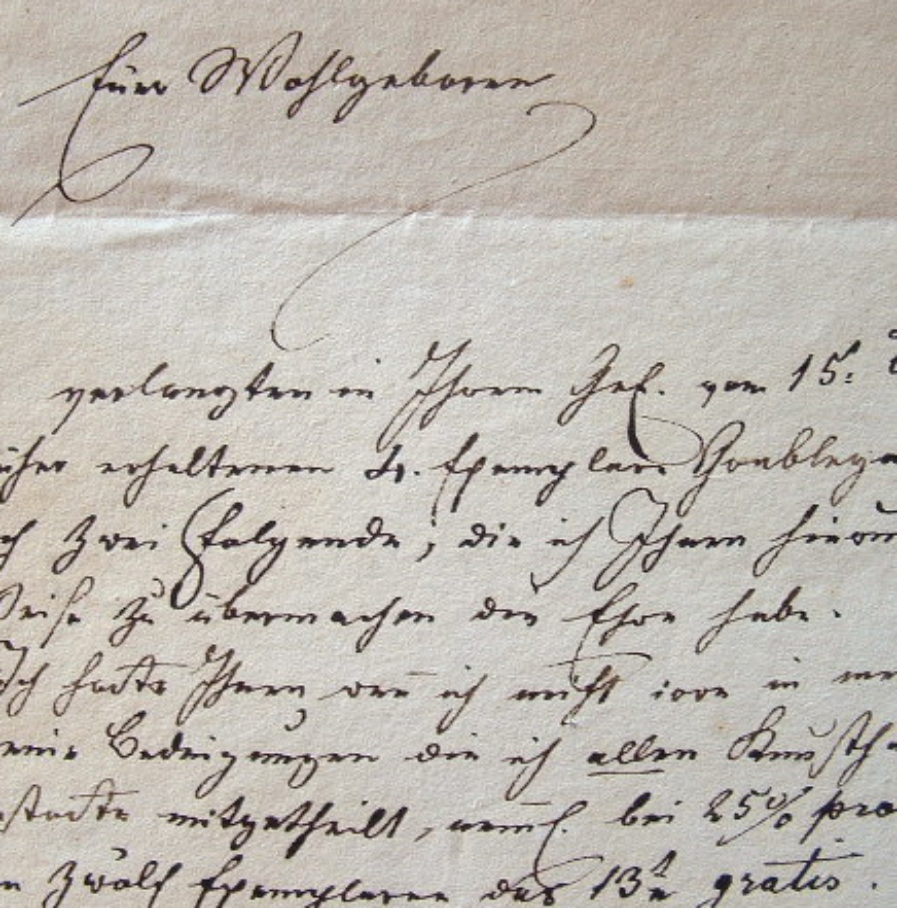 Euer Wohlgeboren
verlangten in Ihrem Gef. vom 15:
erhaltenen Exemplare
zwei folgende, die ich Ihnen
zu übermachen die Ehre habe.
Ich hatte Ihnen wen̄ ich nicht irre in
Bedingungen die ich allen
mitgetheilt, neml. bei 25% pro
zwölf Exemplaren das 13te gratis.